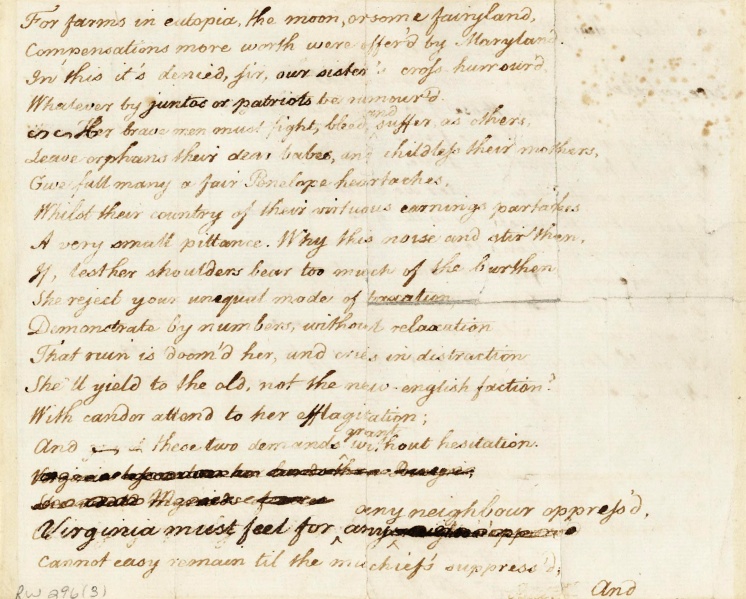 For farms in eutopia, the moon, or some fairyland,
Compensations more worth were offer'd by Maryland.
In this it's denied, sir, our sister's cross humour'd
Whatever by juntos or patriots be rumour'd
Her brave men must fight, bleed and suffer, as others,
Leave orphans their dear babes, and childless their mothers,
Give full many a fair Penelope heartaches,
Whilst their country of their virtuous earnings partakes
A very small pittance. Why this noise and stir then,
If, lest her shoulders bear too much of the burthen
She reject your unequal mode of taxation
Demonstrate by numbers, without relaxation
That ruin is doom'd her, and cries in distraction
She'll yield to the old, not the new-english faction?
With candor attend to her efflagitation;
And these two demands grant without hesitation.
any neighbour oppress'd,
Virginia must feel for any
Cannot easy remain til the mischief's suppress'd;
And
RW 296(3)